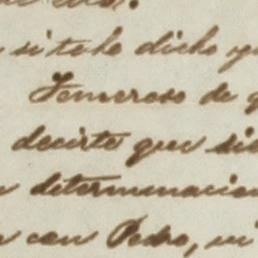 si te he dicho
Temeroso de
decirte que
determinacion
con Pedro, ni